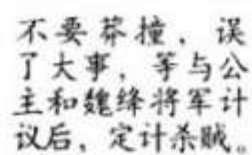 不要莽撞，误
了大事，等与公
主和魏绛将军计
议后，定计杀贼。